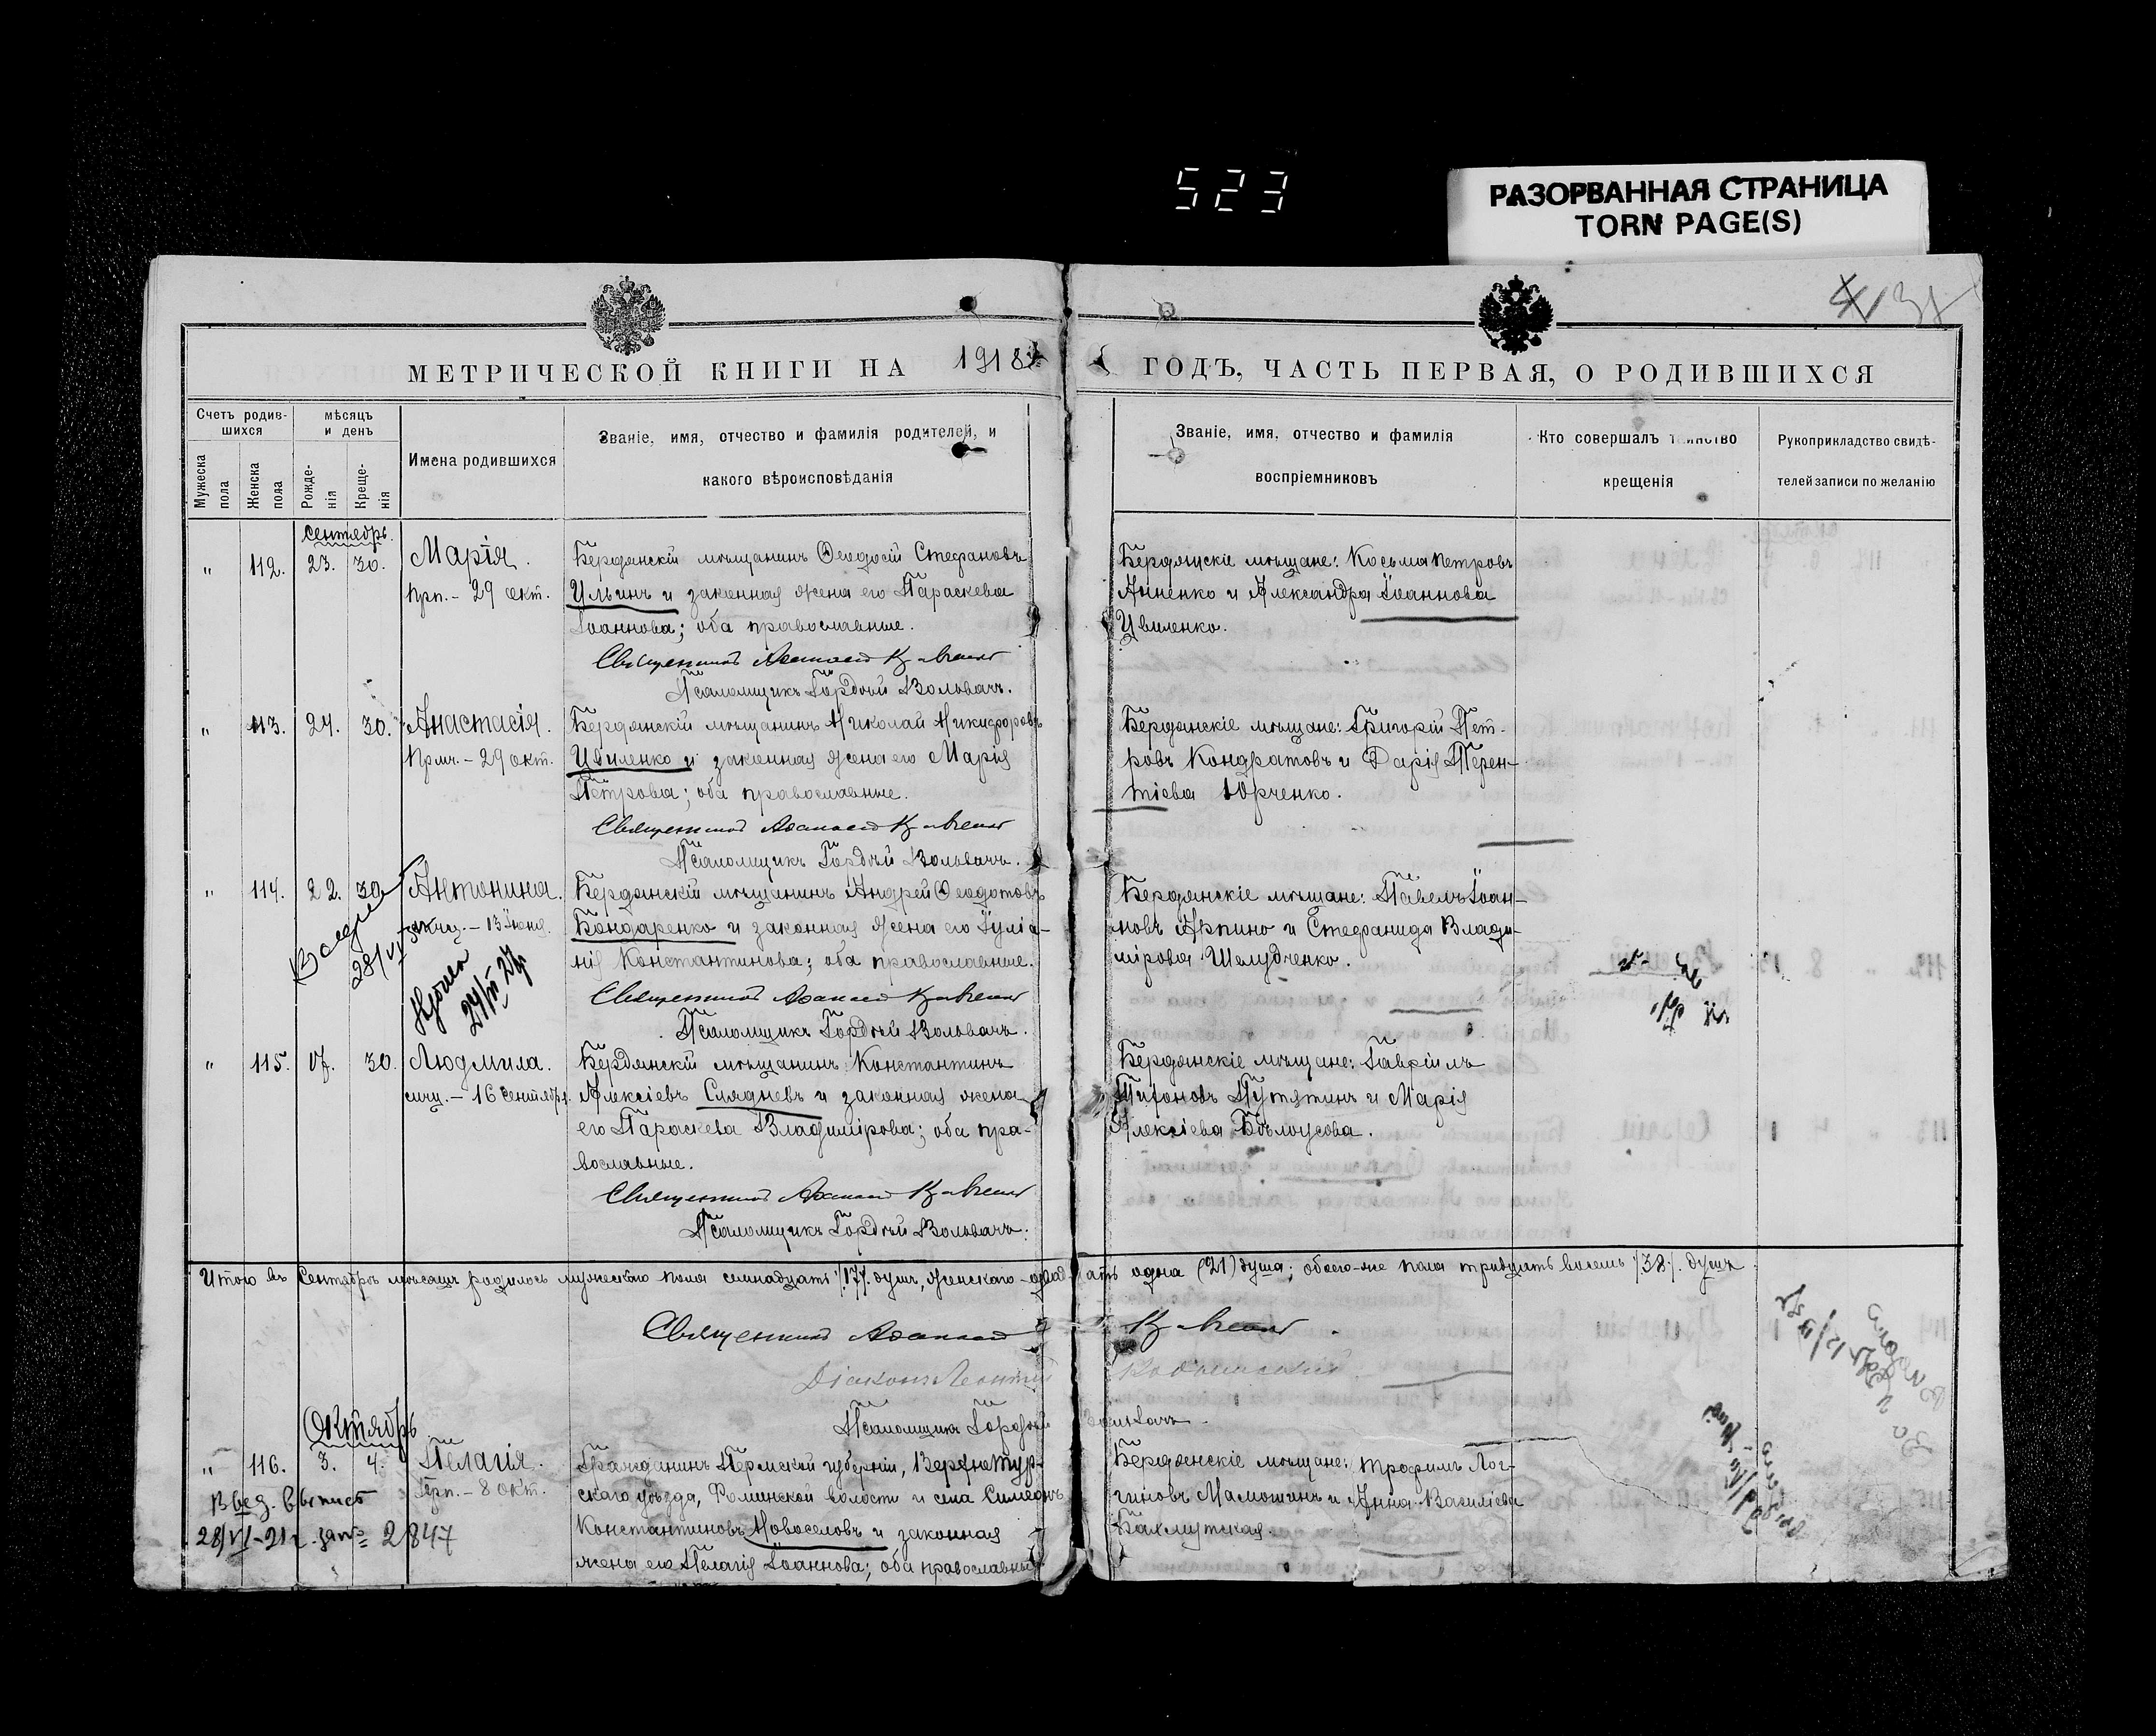 523
РАЗОРВАННАЯ СТРАНИЦА
TORN PAGE(S)
МЕТРИЧЕСКОЙ КНИГИ НА 1918
ГОДЪ, ЧАСТЬ ПЕРВАЯ, О РОДИВШИХСЯ
Счетъ родив-
шихся
Мужеска
пола
Женска
пола
мѣсяцъ
и день
Рожде-
нія
Креще-
нія
Имена родившихся
Званіе, имя, отчество и фамилія родителей, и
какого вѣроисповѣданія
Званіе, имя, отчество и фамилія
воспріемниковъ
Кто совершалъ таинство
крещенія
Рукоприкладство свидѣ-
телей записи по желанію
Сентябрь.
" 112. 23. 30. Марія.
прп. - 29 окт.
Бердянскій мѣщанинъ Ѳеодосій Стефановъ
Ильинъ и законная жена его Параскева
Іоаннова; оба православные.
Священникъ
Псаломщикъ Гордѣй Вольвачъ.
Бердянскіе мѣщане: Косьма Петровъ
Анненко и Александра Іоаннова
Цвиленко.
" 113. 24. 30. Анастасія.
Прмч. - 29 окт.
Бердянскій мѣщанинъ Николай Никифоровъ
Цвиленко и законная жена его Марія
Петрова; оба православные.
Священникъ
Псаломщикъ Гордѣй Вольвачъ.
Бердянскіе мѣщане: Григорій Пет-
ровъ Кондратовъ и Дарія Терен-
тіева Юрченко.
" 114. 22. 30. Антонина.
мчц. - 13 Іюня.
28/VI
Бердянскій мѣщанинъ Андрей Ѳеодотовъ
Бондаренко и законная жена его Іуліа-
нія Константинова; оба православные.
Священникъ
Псаломщикъ Гордѣй Вольвачъ.
Бердянскіе мѣщане: Павелъ Іоан-
новъ Арпино и Стефанида Влади-
мірова Шелудченко.
" 115. 17. 30. Людмила.
мчц. - 16 Сентября.
Бердянскій мѣщанинъ Константинъ
Алексіевъ Слядневъ и законная жена
его Параскева Владимірова; оба пра-
вославные.
Священникъ
Псаломщикъ Гордѣй Вольвачъ.
Бердянскіе мѣщане: Гавріилъ
Тихоновъ Путятинъ и Марія
Алексіева Бѣлоусова.
Итого въ Сентябрѣ мѣсяцѣ родилось мужескаго пола семнадцать /17/. душъ, женскаго - двадцать одна (21) душа; обоего-же пола тридцать восемь /38/. душъ.
Священникъ
Діаконъ Леонтій
Псаломщикъ Гордѣй Вольвачъ
Октябрь
" 116. 3. 4. Пелагія.
Прп. - 8 Окт.
28/VI-21 г. 2847
Гражданинъ Пермской губерніи, Верхотур-
скаго уѣзда, Фоминской волости и села Симеонъ
Константиновъ Новоселовъ и законная
жена его Пелагія Іоаннова; оба православные
Бердянскіе мѣщане: Трофимъ Лог-
гиновъ Мамошинъ и Анна Василіева
Бахмутская.